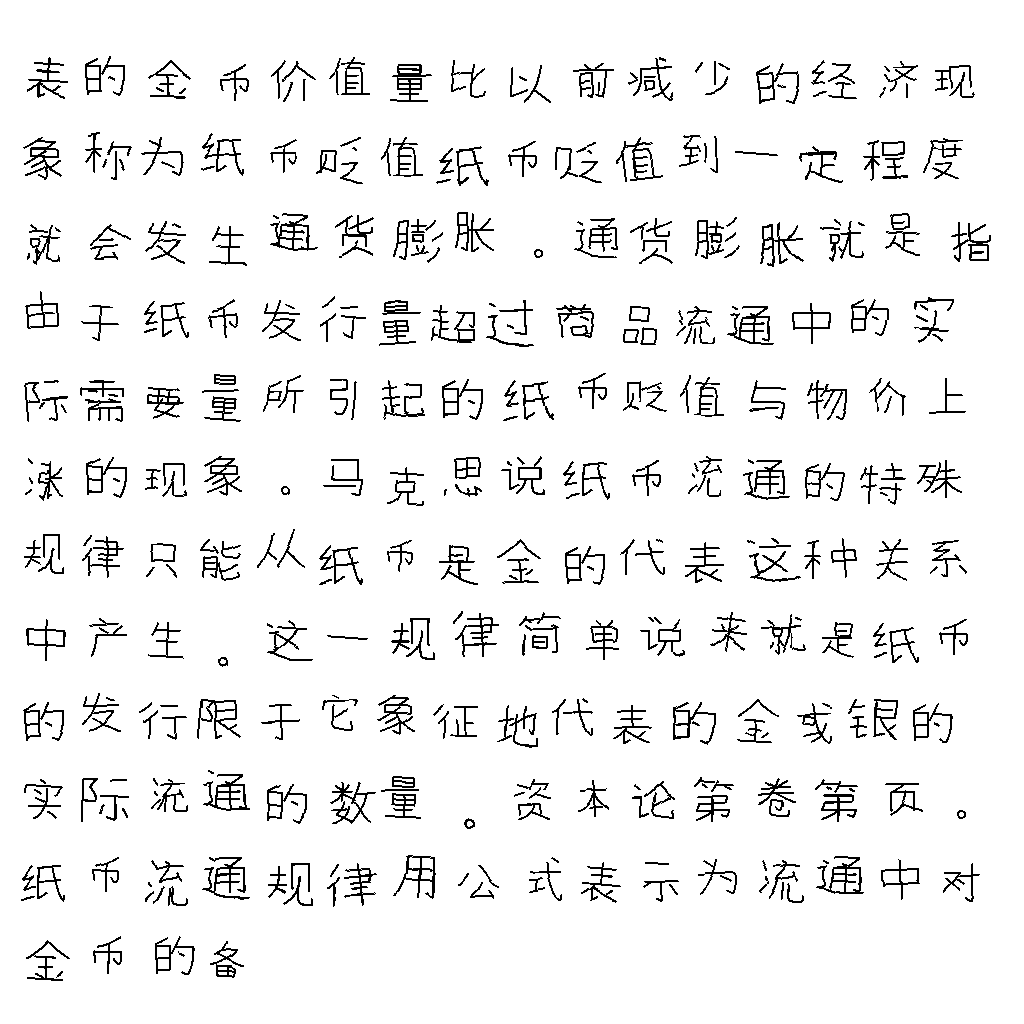 表的金币价值量比以前减少的经济现
象称为纸币贬值纸币贬值到一定程度
就会发生通货膨胀。通货膨胀就是指
由于纸币发行量超过商品流通中的实
际需要量所引起的纸币贬值与物价上
涨的现象。马克思说纸币流通的特殊
规律只能从纸币是金的代表这种关系
中产生。这一规律简单说来就是纸币
的发行限于它象征地代表的金或银的
实际流通的数量。资本论第卷第页。
纸币流通规律用公式表示为流通中对
金币的备